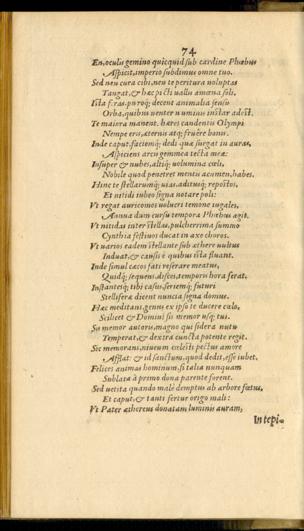 74
En, oculis gemino quicquid sub cardine Phœbus
Aspicit, imperio subdimus omne tuo.
Sed neu cura cibi, neu te peritura voluptas
Tangat, & hæc picti uallis amœna soli.
Ista feras, puroq; decent animalia sensu
Orba, quibus uenter numinis instar adest.
Te maiora manent. hæres candentis Olympi
Nempe eris, æternis atq; fruere bonis.
Inde caput, faciemq; dedi quæ surgat in auras,
Aspiciens arcis gemmea tecta meæ:
Insuper & nubes, altiq; uolumina cœli,
Nobile quod penetret mentis acumen, habes.
Hinc te stellarumq; uias, aditusq; repostos,
Et nitidi iubeo signa notare poli:
Vt regat auricomos uolucri temone iugales,
Annua dum cursu tempora Phœbus agit.
Vt nitidas inter stellas, pulcherrima summo
Cynthia festiuos ducat in axe choros.
Vt uarios eadem stellante sub æthere uultus
Induat, & caussis è quibus ista fluant.
Inde simul cæcos fati reserare meatus,
Quidq; sequens disces, temporis hora ferat.
Instantesq; tibi casus, seriemq; futuri
Stellifera dicent nuncia signa domus.
Hæc meditans, genus ex ipso te ducere cœlo,
Scilicet & Domini sis memor usq; tui.
Sis memor autoris, magno qui sidera nutu
Temperat, & dextra cuncta potente regit.
Sic memorans, niueum cœlesti pectus amore
Afflat: & id sanctum, quod dedit, esse iubet.
Felices animas hominum, si talia nunquam
Sublata à primo dona parente forent.
Sed uetita quando malè demptus ab arbore fœtus,
Et caput, & tanti fertur origo mali:
Vt Pater æthereus donatam luminis auram,
Intepi-